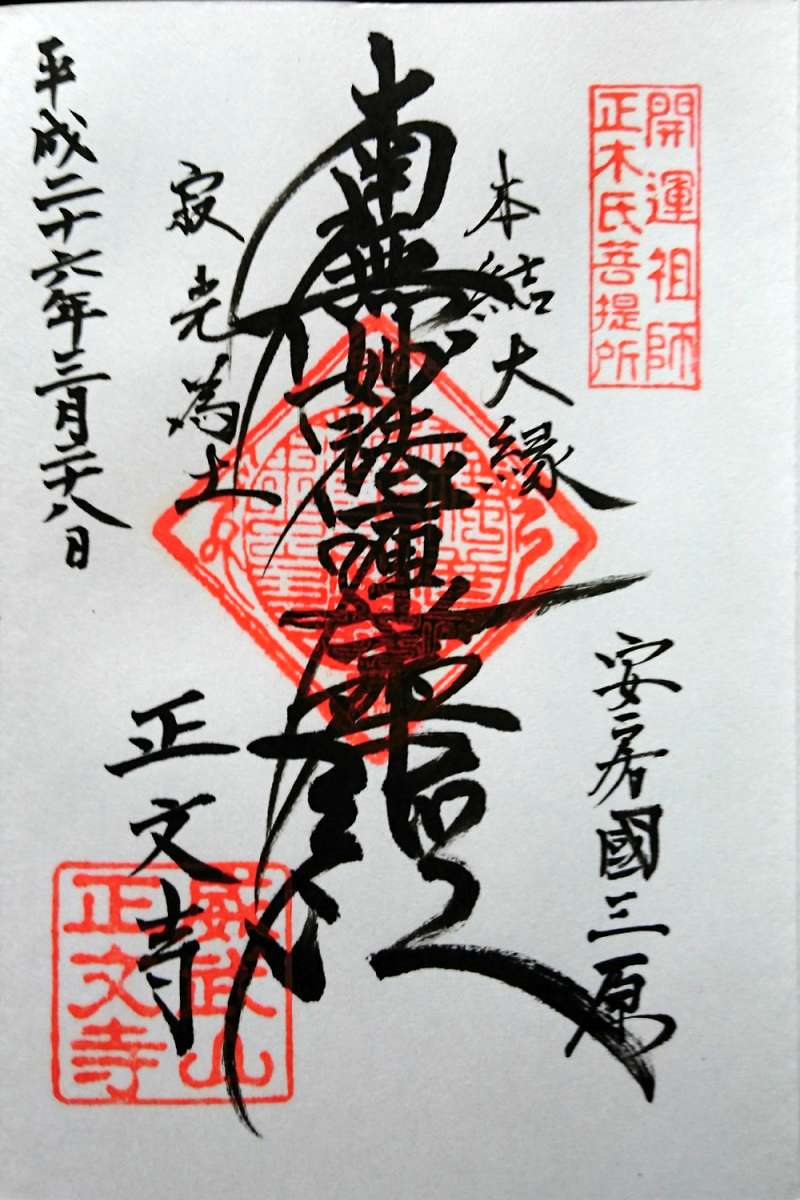 開運祖師
正木氏菩提所
安房國三原
本結大縁
南無妙法蓮華経
寂光為土
正文寺
威武山
正文寺
平成二十六年三月二十八日